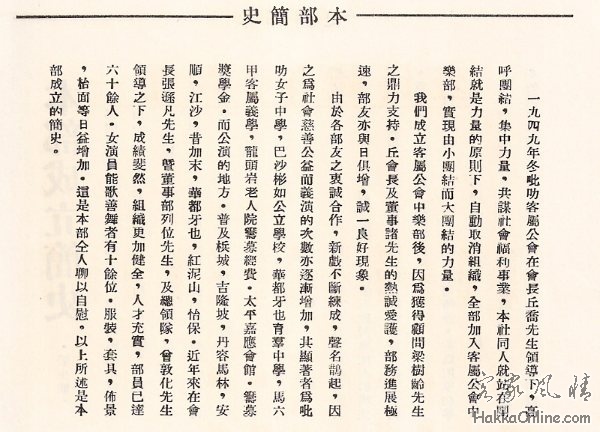 本部簡史
一九四九年冬吡叻客屬公會在會長丘喬先生領導下,高
呼團結,集中力量,共謀社會福利事業,本社同人就站在團
結就是力量的原則下,自動取消組織,全部加入客屬公會中
樂部,實現由小團結而大團結的力量。
我們成立客屬公會中樂部後,因爲獲得顧問梁樹齡先生
之鼎力支持。丘會長及董事諸先生的熱誠愛護,部務進展極
速,部友亦與日俱增,誠一良好現象。
由於各部友之衷誠合作,新戲不斷練成,聲名鵲起,因
之爲社會慈善公益而義演的次數亦逐漸增加,其顯著者爲吡
叻女子中學,巴沙彬如公立學校,華都牙也育羣中學,馬六
甲客屬義學,龍頭岩老人院籌募經費。太平嘉應會館。籌募
獎學金。而公演的地方。普及檳城,吉隆坡,丹容馬林,安
順,江沙,昔加末,華都牙也,紅泥山,怡保。近年來在會
長張遜凡先生,暨董事部列位先生,及總領隊,曾敦化先生
領導之下,成績斐然,組織更加健全,人才充實,部員已達
六十餘人。女演員能歌善舞者有十餘位。服裝,套具,佈景
,枱面等日益增加。這是本部仝人聊以自慰。以上所述是本
部成立的簡史。
客家風情
HakkaOnline.com